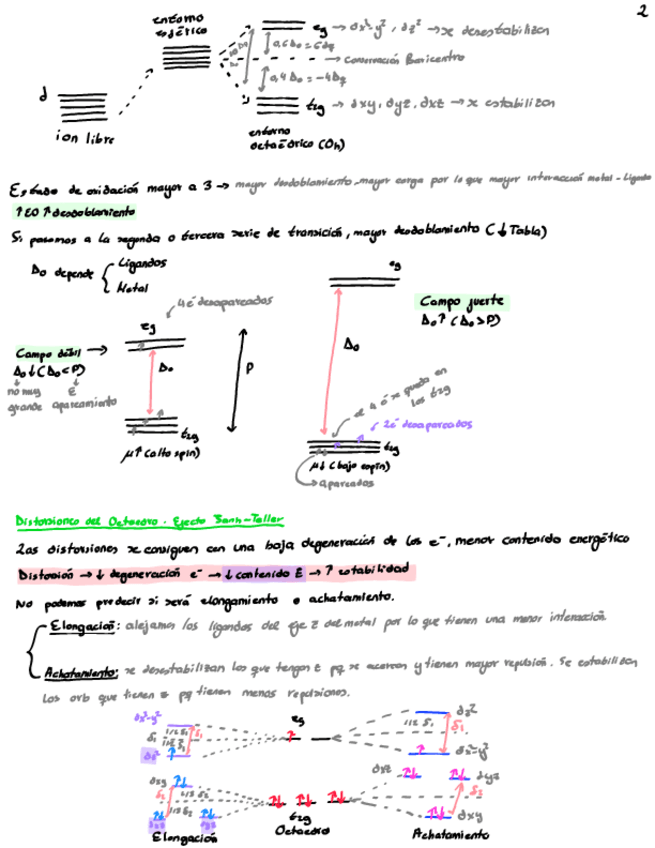 2
entorno
esférico
eg → dx²-y², dz² → se desestabilizan
0,6Δo = 6Dq
Conservación Baricentro
0,4Δo = -4Dq
d
t2g → dxy, dyz, dxz → se estabilizan
ion libre
entorno
octaédrico (Oh)
Estado de oxidación mayor a 3 → mayor desdoblamiento, mayor carga por lo que mayor interacción metal-ligando
↑EO ↑desdoblamiento
Si pasamos a la segunda o tercera serie de transición, mayor desdoblamiento (↓Tabla)
Δo depende { Ligandos
Metal
eg
4e⁻ desapareados
eg
Campo fuerte
Δo↑ (Δo>P)
Campo débil →
Δo↓ (Δo<P)
no muy grande
E apareamiento
Δo
P
Δo
el 4 e⁻ se queda en
los t2g
2e⁻ desapareados
t2g
t2g
μ↑ (alto spin)
μ↓ (bajo espín)
apareados
Distorsiones del Octaedro. Efecto Jahn-Teller
Las distorsiones se consiguen con una baja degeneración de los e⁻, menor contenido energético
Distorsión → ↓ degeneración e⁻ → ↓ contenido E → ↑ estabilidad
No podemos predecir si será elongamiento o achatamiento.
Elongación: alejamos los ligandos del eje z del metal por lo que tienen una menor interacción.
Achatamiento: se desestabilizan los que tengan z pq se acercan y tienen mayor repulsión. Se estabilizan
los orb que tienen z pq tienen menos repulsiones.
dx²-y²
eg
dz²
δ1
1/2 δ1
1/2 δ1
δ1
1/2 δ1
δ1
dz²
dx²-y²
dxy
dxz
dyz
δ2
1/3 δ2
δ2
dxz
dyz
t2g
dxy
Elongación
Octaedro
Achatamiento